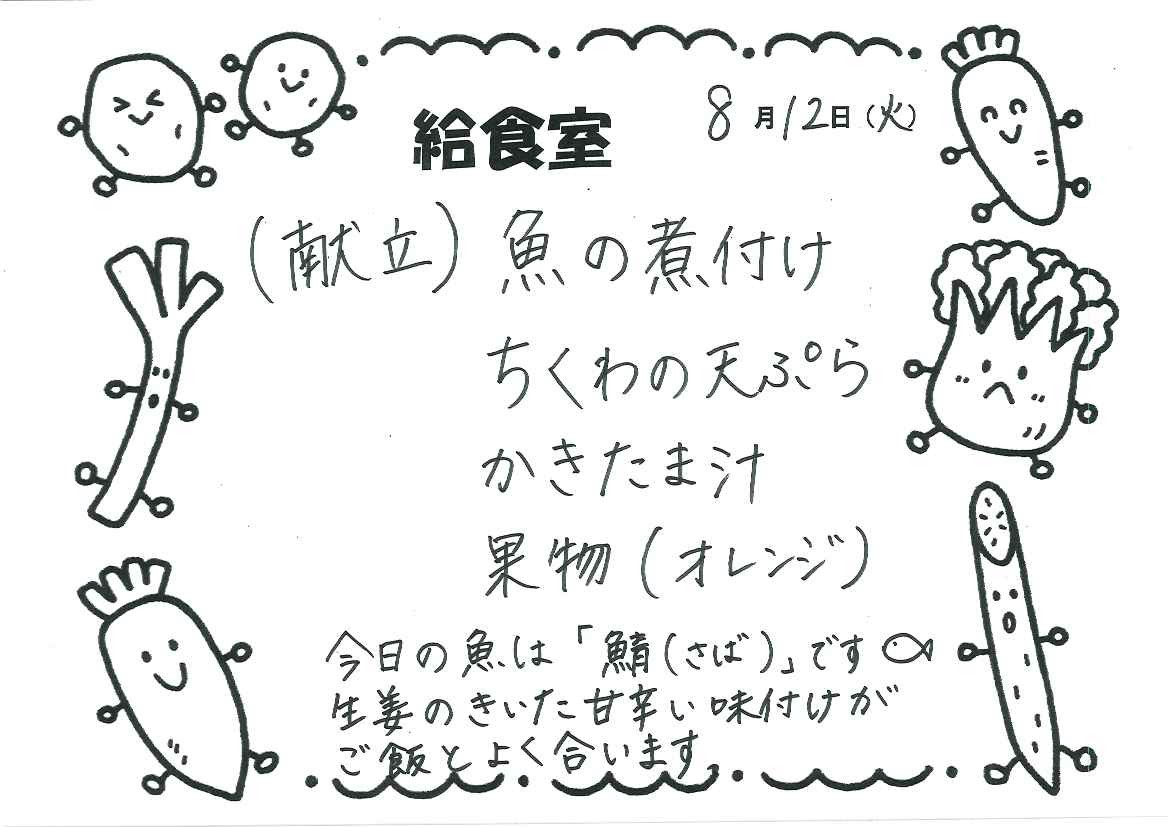 給食室 8月12日(火)
(献立) 魚の煮付け
ちくわの天ぷら
かきたま汁
果物(オレンジ)
今日の魚は「鯖(さば)」です
生姜のきいた甘辛い味付けが
ご飯とよく合います。